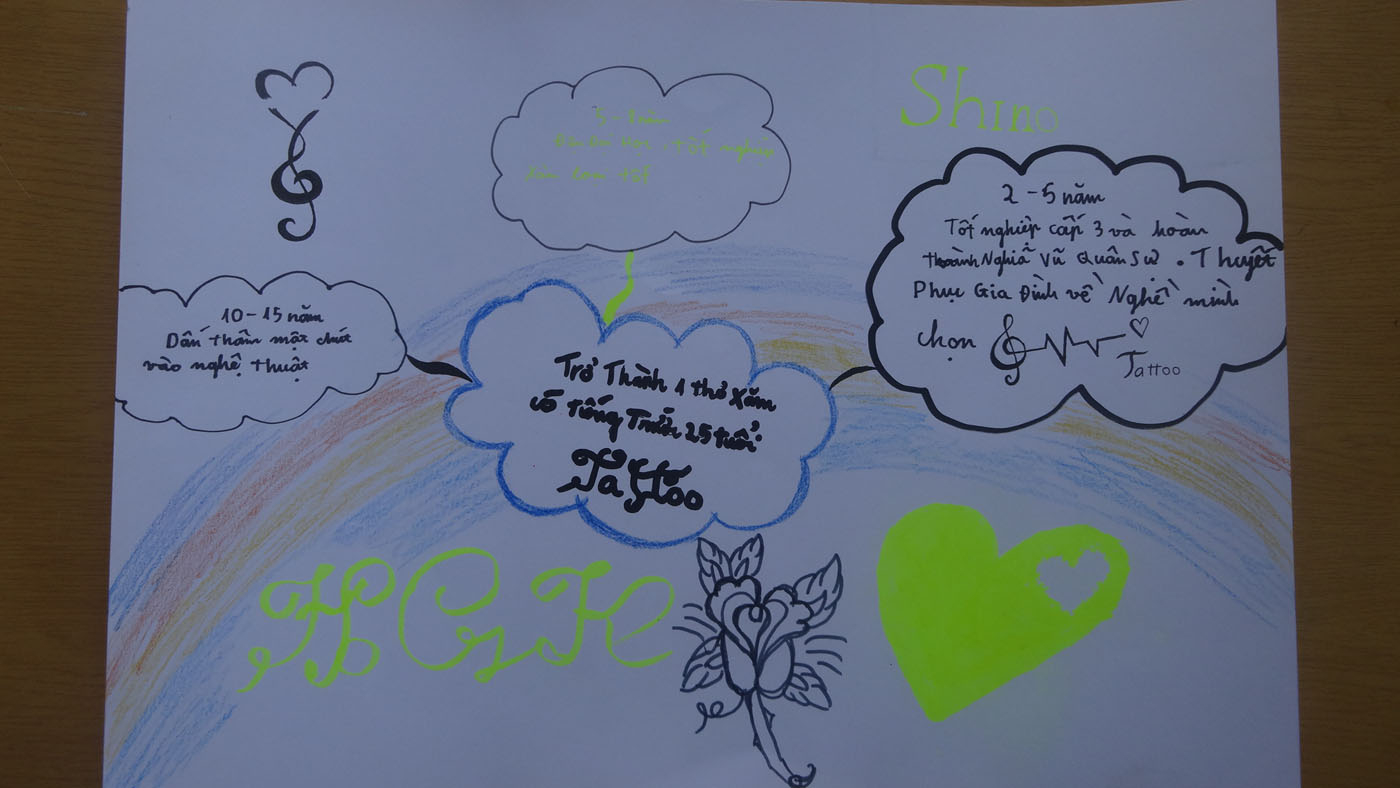 Shino
5-8 năm
. Tốt nghiệp
2-5 năm
Tốt nghiệp cấp 3 và hoàn
thành Nghĩa Vũ Quân Sự . Thuyết
Phục Gia Đình về Nghề mình
chọn
Tattoo
10-15 năm
Dấn thân một chút
vào nghệ thuật
Trở Thành 1 thợ Xăm
có tiếng Trước 25 tuổi
Tattoo